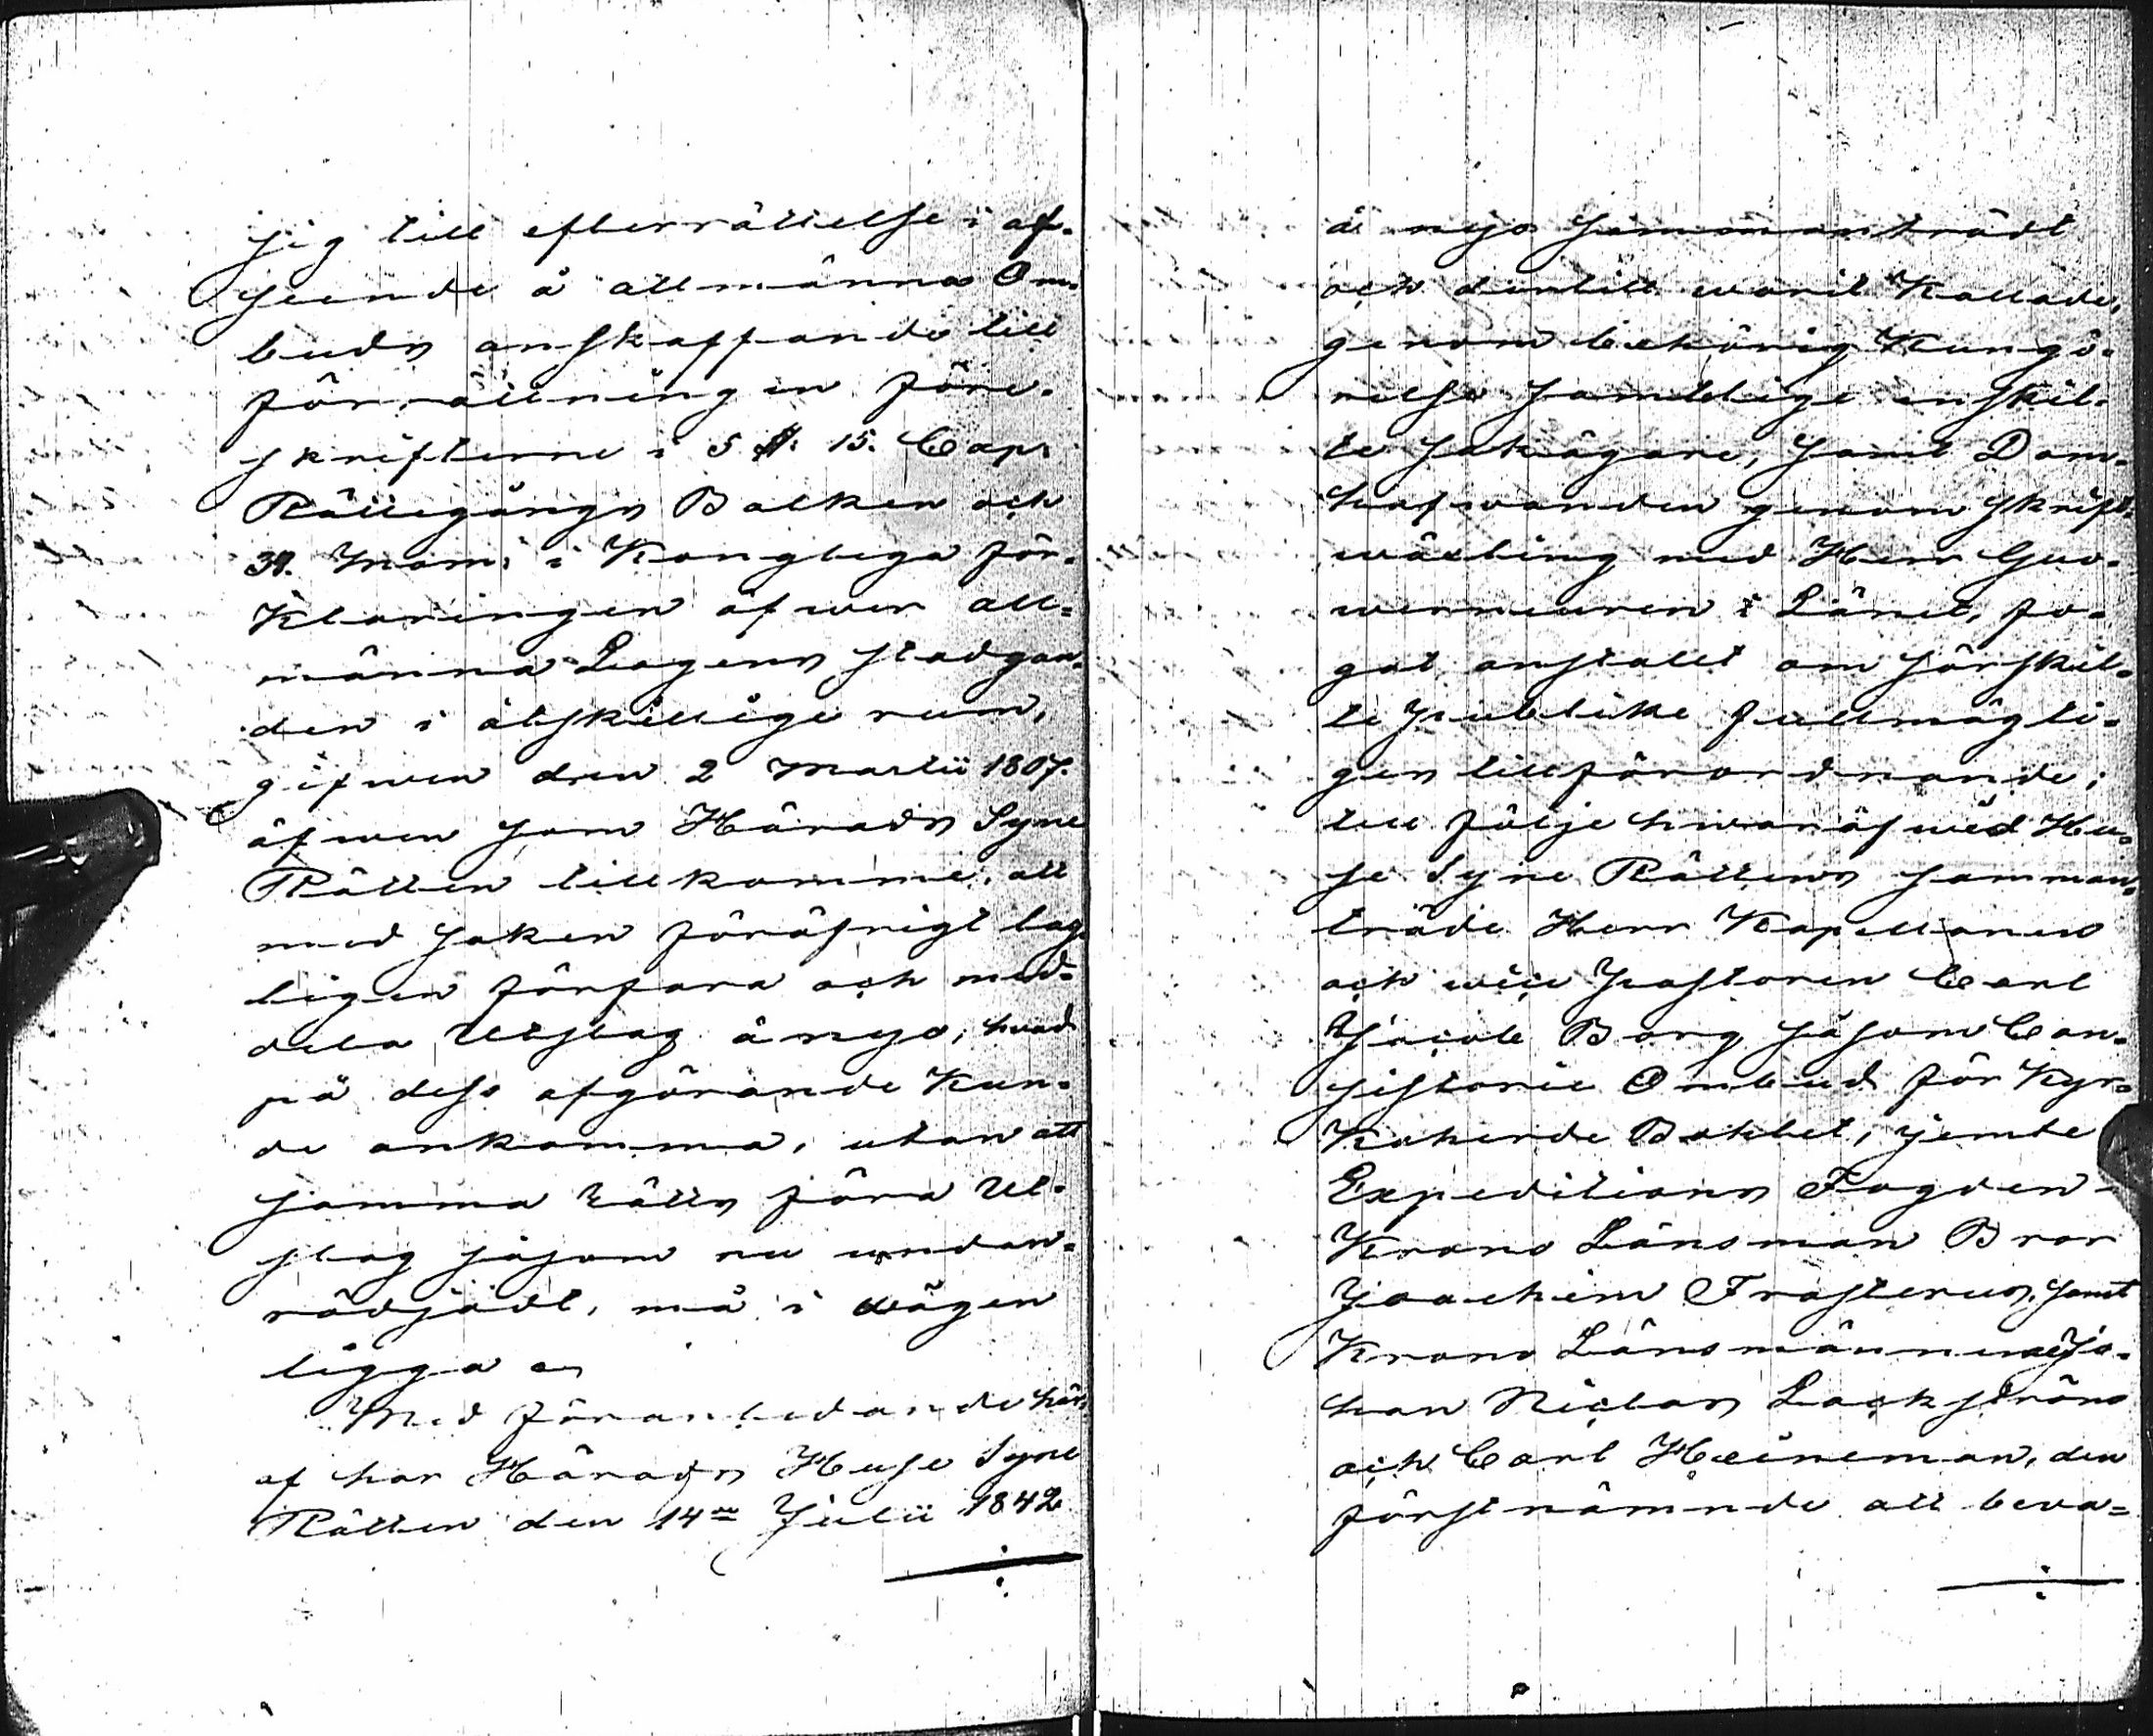 sig till efterrättelse i af-
seende å allmänna Om-
buds anskaffande till
förrättningen före-
skrifterne i 5 §. 15. Cap.
Rättegångs Balken och
39. Mom. i Kongliga för-
Klaringen öfwer all-
männa Lagens stadgan-
den i åtskillige rum,
gifwen den 2 Martii 1807.
äfwen som Härads Syne
Rätten tillkomme, att
med saken föröfrigt lag-
ligen förfara och med-
dela Utslag å nyo, hvad
på dess afgörande Kun-
de ankomma, utan att
samma Rätts förra Ut-
slag såsom nu undan-
rödjadt, må i wägen
ligga
Med föranledande här-
af har Härads Huse Syne
Rätten den 14de Julii 1842
å nyo sammanträdt
och dertill warit Kallade,
genom behörig Kungö-
relse samtlige enskil-
te sakägare, samt Dom-
hafwanden genom skrift-
wäxling med Herr Guv-
werneuren i Länet, fo-
gat anstallt om särskil-
te publike fullmägti-
ges tillförordnande;
till följe hwaraf wid Hu-
se Syne Rättens samman-
träde Herr Kapellanen
och wice Pastoren Carl
Jacob Borg såsom Con-
sistorii Ombud för Kyr-
Koherde Bohlet, jemte
Expeditions Fogden
Krono Länsman Bror
Joachim Frosterus, samt
Krono Länsmännerne Jo-
han Niclas Lackström
och Carl Heineman, den
förstnämnde att beva-